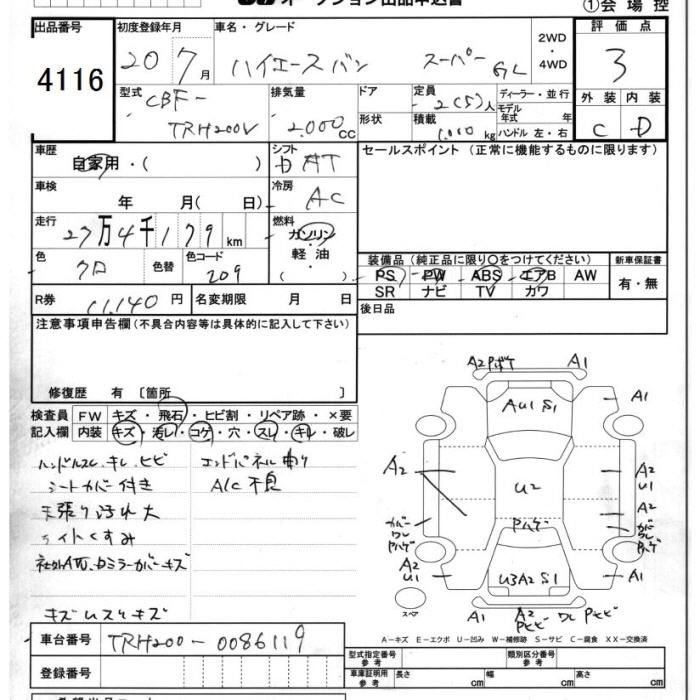 オークション出品申込書
①会場控
出品番号 初度登録年月 車名・グレード 評価点
4116 20 7月 ハイエースバン スーパー GL 2WD・4WD 3
型式 排気量 ドア 定員 ディーラー・並行 外装 内装
CBF-TRH200V 2,000cc 形状 2(5)人 積載 1,000kg モデル年式 年 ハンドル 左・右 C D
車歴 シフト セールスポイント (正常に機能するものに限ります)
自家用・( ) AT
車検 冷房
年 月( 日) AC
走行 燃料
27万4千179km ガソリン・軽油・( )
色 色替 色コード
クロ 209
装備品 (純正品に限り○をつけてください) 新車保証書
PS PW ABS エアB AW 有・無
SR ナビ TV カワ
R券 11,140円 名変期限 月 日 後日品
注意事項申告欄 (不具合内容等は具体的に記入して下さい)
修復歴 有 〔箇所 〕
検査員 FW キズ・飛石・ヒビ割・リペア跡・×要
記入欄 内装 キズ・汚レ・コゲ・穴・スレ・キレ・破レ
ハンドルスレ キレ ヒビ エンドパネル曲り
シートカバー付き A/C不良
天張り汚れ大
ライトくすみ
社外AW ドアミラーカバーキズ
A2 Pボケ A1
AU1 S1 A1
A2 A2
U2 U1
A2
カバー ワレ Pハゲ Pハゲ カバー ワレ Pハゲ
A2 U1 U3 A2 S1 A1
スペア A1 A2 Pヒビ ワレ Pヒビ
A-キズ E-エクボ U-凹み W-補修跡 S-サビ C-腐食 XX-交換済
車台番号 TRH200-0086119
登録番号
型式指定番号 参考 類別区分番号 参考
車庫証明用 参考 長さ cm 幅 cm 高さ cm